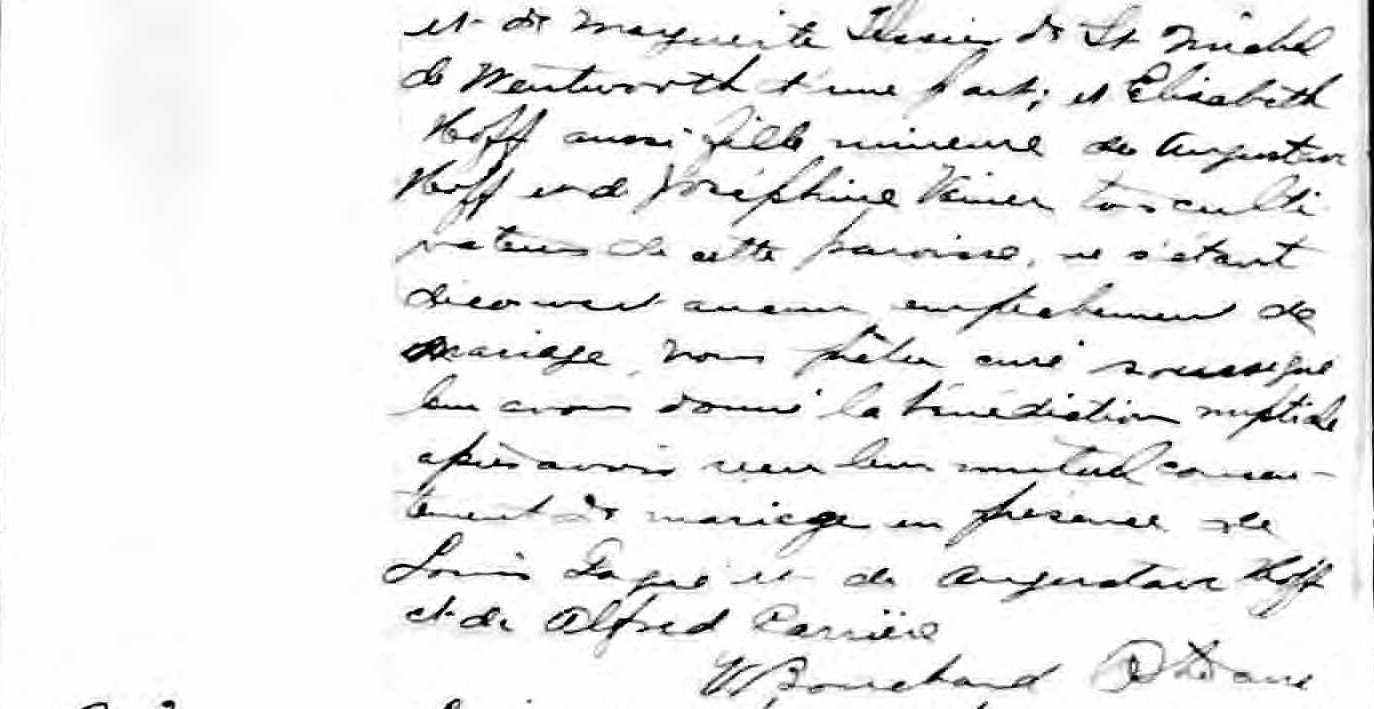 et de Marguerite Tessier de St Michel
de Wentworth d'une part; et Elisabeth
Hoff aussi fille mineure de Augustave
Hoff et de Joséphine Viner tous culti
vateurs de cette paroisse, ne s'étant
découvert aucun empêchement de
mariage, nous prêtre curé soussigné
leur avons donné la bénédiction nuptiale
après avoir reçu leur mutuel consen-
tement de mariage en présence de
Louis Paqué et de Augustave Hoff
et de Alfred Carrière
Bouchard